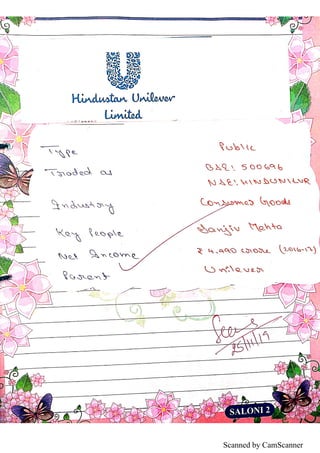 Hindustan Unilever
Limited
Type Public
Traded as BSE: 500696
NSE: HINDUNILVR
Industry Consumer Goods
Key People Sanjiv Mehta
Net Income ₹ 4,490 crore (2016-17)
Parent Unilever
25/11/19
SALONI 2
Scanned by CamScanner